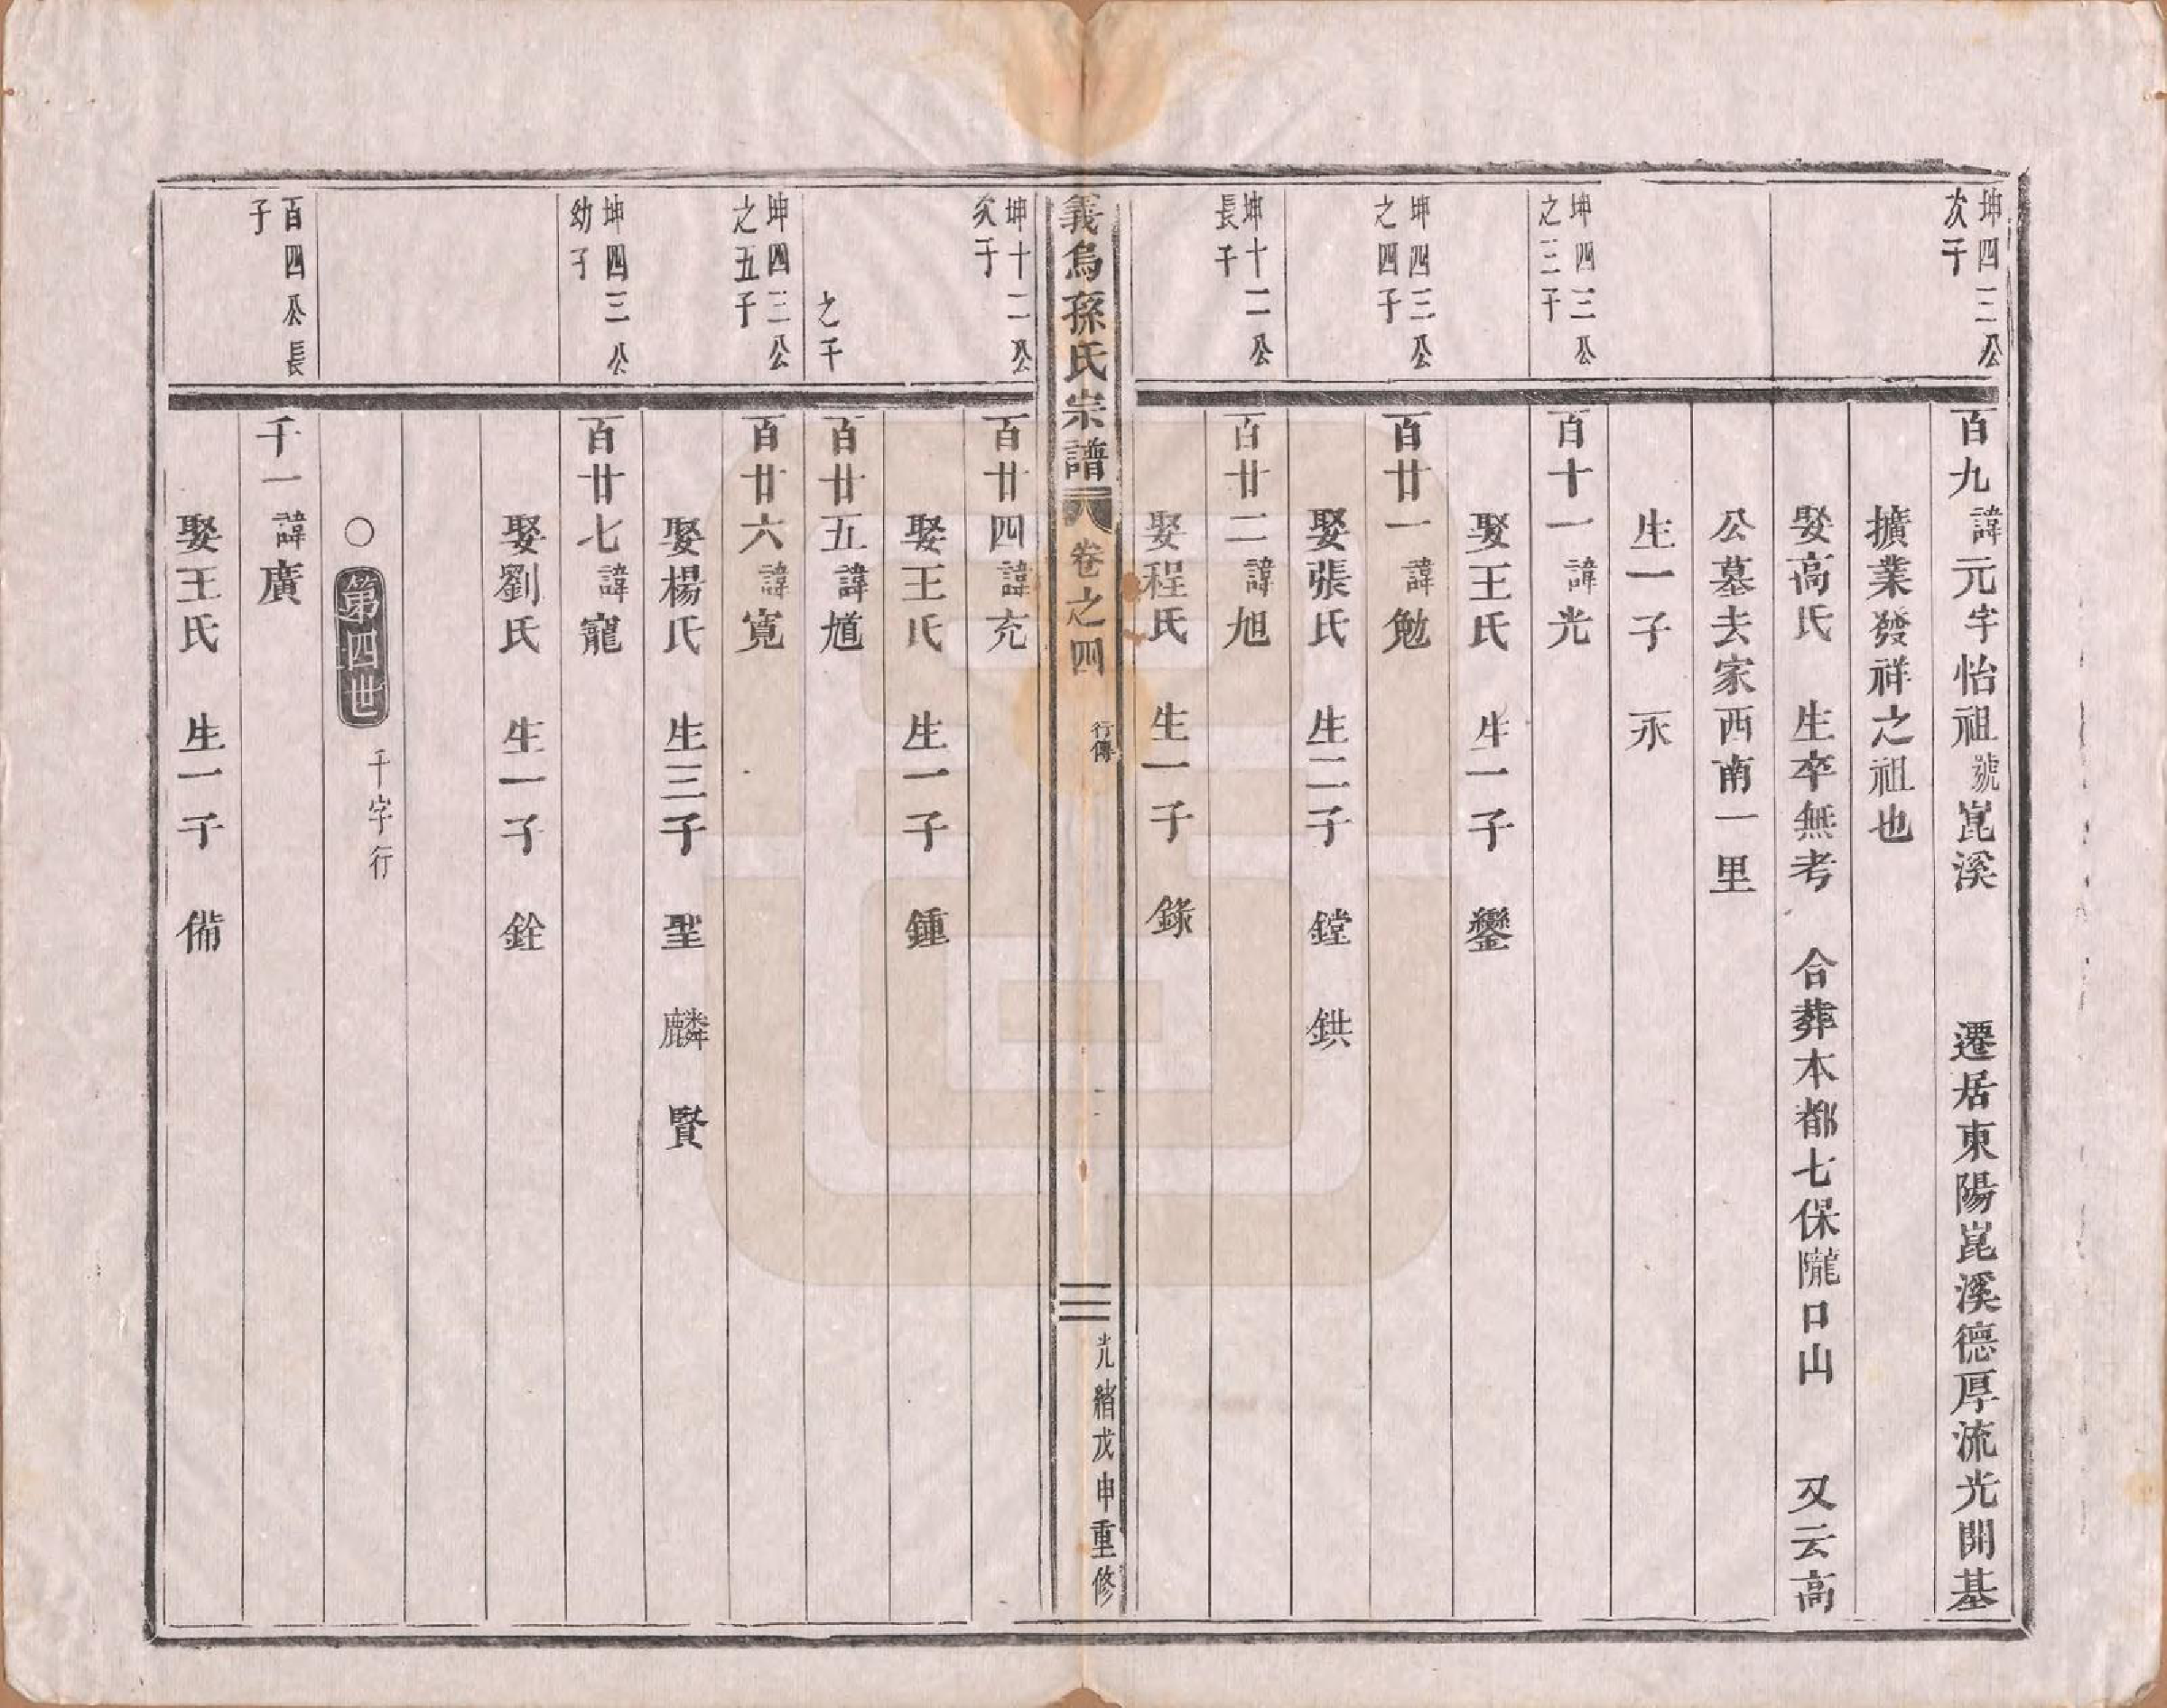 坤四三公
次子
百九諱元字怡祖號崑溪 遷居東陽崑溪德厚流光開基
擴業發祥之祖也
娶高氏 生卒無考 合葬本都七保隴口山 又云高
公墓去家西南一里
生一子 永
坤四三公
之三子
百十一諱光
娶王氏 生一子 鑾
坤四三公
之四子
百廿一諱勉
娶張氏 生二子 鏜 鉷
坤十二公
長子
百廿二諱旭
娶程氏 生一子 錄
義烏孫氏宗譜 卷之四 行傳 三 光緒戊申重修
坤十二公
次子
百廿四諱充
娶王氏 生一子 鍾
之子
百廿五諱馗
坤四三公
之五子
百廿六諱寬
娶楊氏 生三子 聖 麟 賢
坤四三公
幼子
百廿七諱寵
娶劉氏 生一子 銓
○第四世 千字行
百四公長
子
千一諱廣
娶王氏 生一子 備